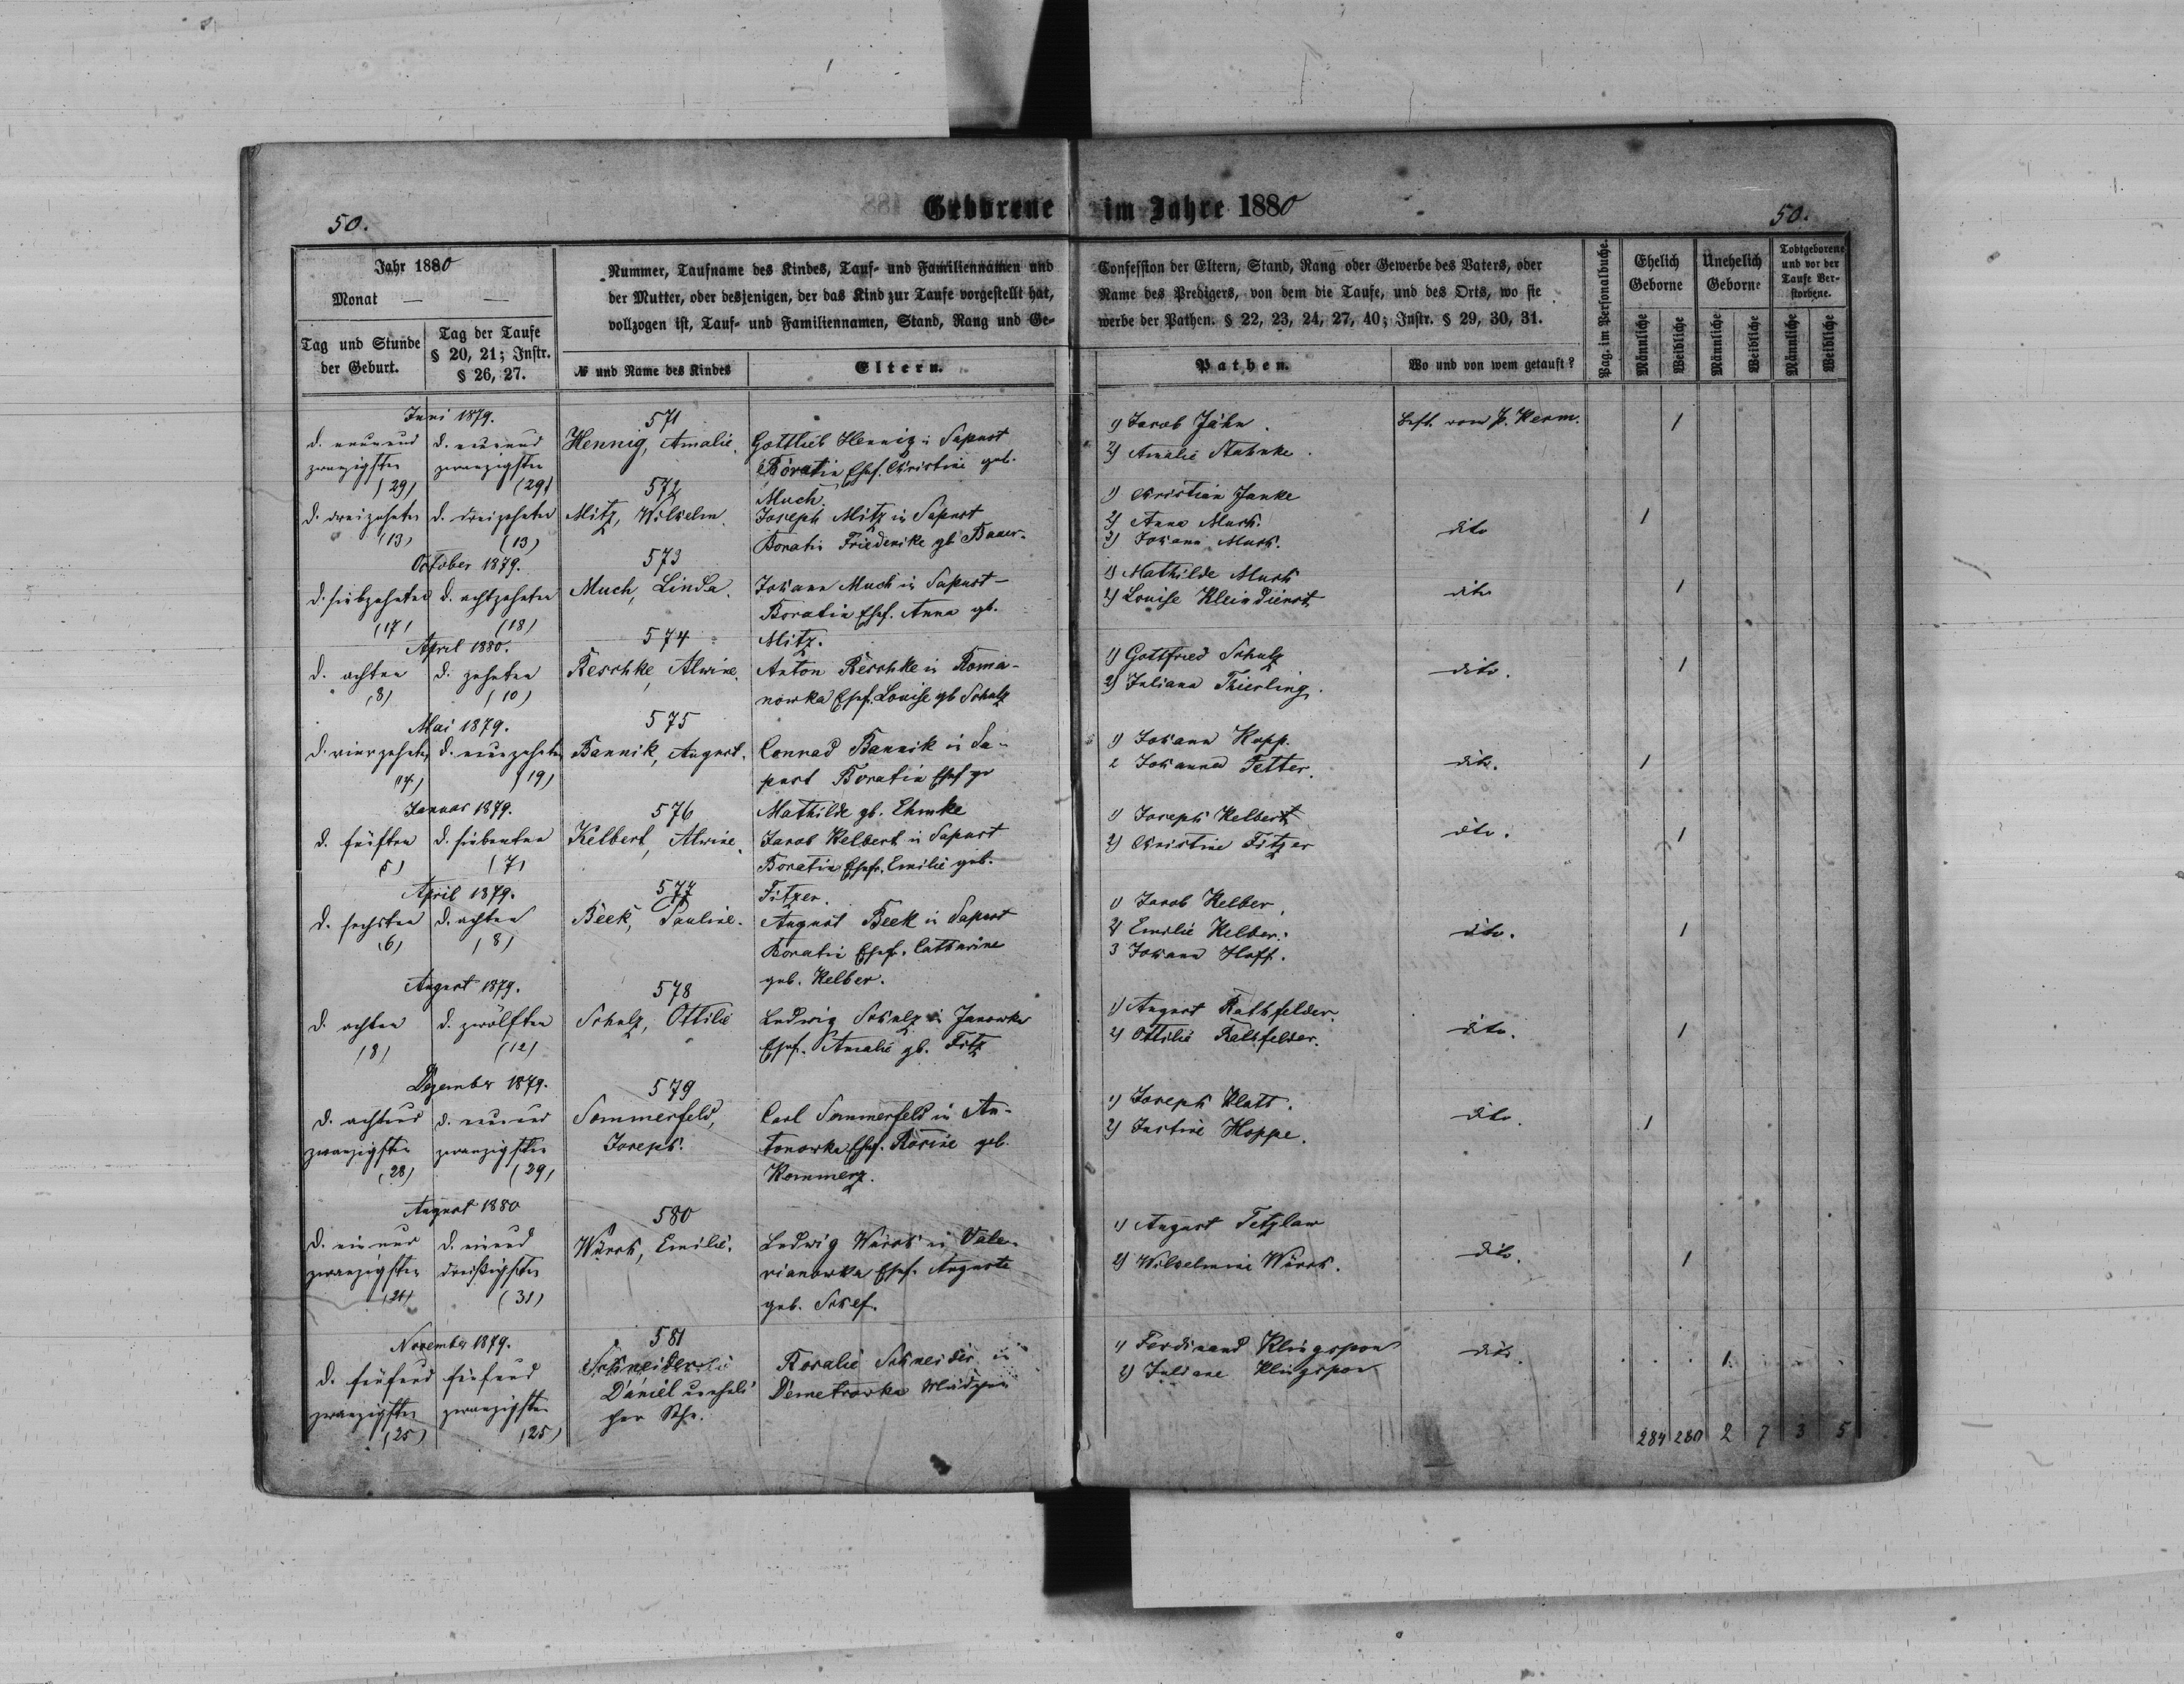 50.
Geborene im Jahre 1880
50.
Jahr 1880
Monat — —
Tag und Stunde der Geburt.
Tag der Taufe § 20, 21; Instr. § 26, 27.
Nummer, Taufname des Kindes, Tauf- und Familiennamen und
der Mutter, oder desjenigen, der das Kind zur Taufe vorgestellt hat,
vollzogen ist, Tauf- und Familiennamen, Stand, Rang und Ge-
№ und Name des Kindes
Eltern.
Confession der Eltern, Stand, Rang oder Gewerbe des Vaters, oder
Name des Predigers, von dem die Taufe, und des Orts, wo sie
werbe der Pathen. § 22, 23, 24, 27, 40; Instr. § 29, 30, 31.
Pathen.
Wo und von wem getauft?
Pag. im Personalbuche.
Ehelich Geborne
Unehelich Geborne
Todtgeborene und vor der Taufe Verstorbene.
Männliche
Weibliche
Männliche
Weibliche
Männliche
Weibliche
Juni 1879.
571
d. neunund zwanzigsten (29)
d. neunund zwanzigsten (29)
Hennig, Amalie.
Gottlieb Hennig in Sapust
Boratin Ehef. Christine geb.
Much.
1) Jacob Jähn.
2) Amalie Stabnke.
Best. von P. Kerm.
1
572
d. dreizehnten (13)
d. dreizehnten (13)
Mitz, Wilhelm.
Joseph Mitz in Sapust
Boratin Friederike gb. Bauer.
1) Christian Janke
2) Anna Much.
3) Johann Much.
dito
1
October 1879.
573
d. siebzehnten (17)
d. achtzehnten (18)
Much, Linda.
Johann Much in Sapust-
Boratin Ehef. Anna gb.
Mitz.
1) Mathilde Much
2) Louise Kleindienst
dito
1
April 1880.
574
d. achten (8)
d. zehnten (10)
Reschke, Alwine.
Anton Reschke in Roma-
nowka Ehef. Louise gb Schulz
1) Gottfried Schulz
2) Juliana Thierling.
dito.
1
Mai 1879.
575
d. vierzehnten (14)
d. neunzehnten (19)
Bannik, August.
Conrad Bannik in Sa-
pust Boratin Ehef
Mathilde gb. Ehmke
1) Johann Kopp.
2 Johanna Tetter.
dito.
1
Januar 1879.
576
d. fünften (5)
d. siebenten (7)
Kelbert, Alwine.
Jacob Kelbert in Sapust
Boratin Ehefr. Emilie geb.
Fitzer.
1) Joseph Kelbert
2) Christine Fitzer
dito.
1
April 1879.
577
d. sechsten (6)
d. achten (8)
Beek, Pauline.
August Beek in Sapust
Boratin Ehefr. Catharine
geb. Kelber.
1) Jacob Kelber.
2) Emilie Kelber.
3 Johann Hoff.
dito.
1
August 1879.
578
d. achten (8)
d. zwölften (12)
Schulz, Ottilie
Ludwig Schulz in Janowka
Ehef. Amalie gb. Fitz
1) August Rathfelder.
2) Ottilie Rathfelder.
dito.
1
Dezember 1879.
579
d. achtund zwanzigsten (28)
d. neunund zwanzigsten (29)
Sommerfeld,
Joseph.
Carl Sommerfeld in An-
tonowka Ehef. Rosine geb.
Kommerz.
1) Joseph Klatt.
2) Justine Hoppe.
dito.
1
August 1880
580
d. einund zwanzigsten (21)
d. einund dreißigsten (31)
Würch, Emilie.
Ludwig Würch in Vale-
rianowka Ehef. Auguste
geb. Schef.
1) August Tetzlaw
2) Wilhelmine Würch.
dito.
1
November 1879.
581
d. fünfund zwanzigsten (25)
fünfund zwanzigsten (25)
Schneider
Daniel uneheli
cher Sohn.
Rosalie Schneider in
Demetrowka Mädchen
1) Ferdinand Klingspon
2) Juliane Klingspon
dito.
1.
284 280 2 7 3 5